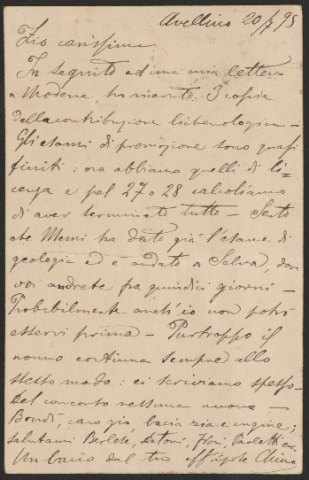 Avellino 20/7 95
Zio carissimo
In seguito ad una mia lettera
a Modena, ho ricevute 3 copie
della contribuzione lichenologica —
Gli esami di promozione sono quasi
finiti: ora abbiamo quelli di li=
cenza e pel 27 o 28 calcoliamo
di aver terminato tutto — Sento
che Memi ha dato già l'esame di
geologia ed è andato a Selva, dove
voi andrete fra quindici giorni —
Probabilmente anch'io non potrò
esservi prima — Purtroppo il
nonno continua sempre allo
stesso modo: ci scriviamo spesso.
Del concorso nessuna nuova —
caro zio, bacia zia e cugine;
salutami Berlese, Detoni,
Un bacio dal tuo aff nipote